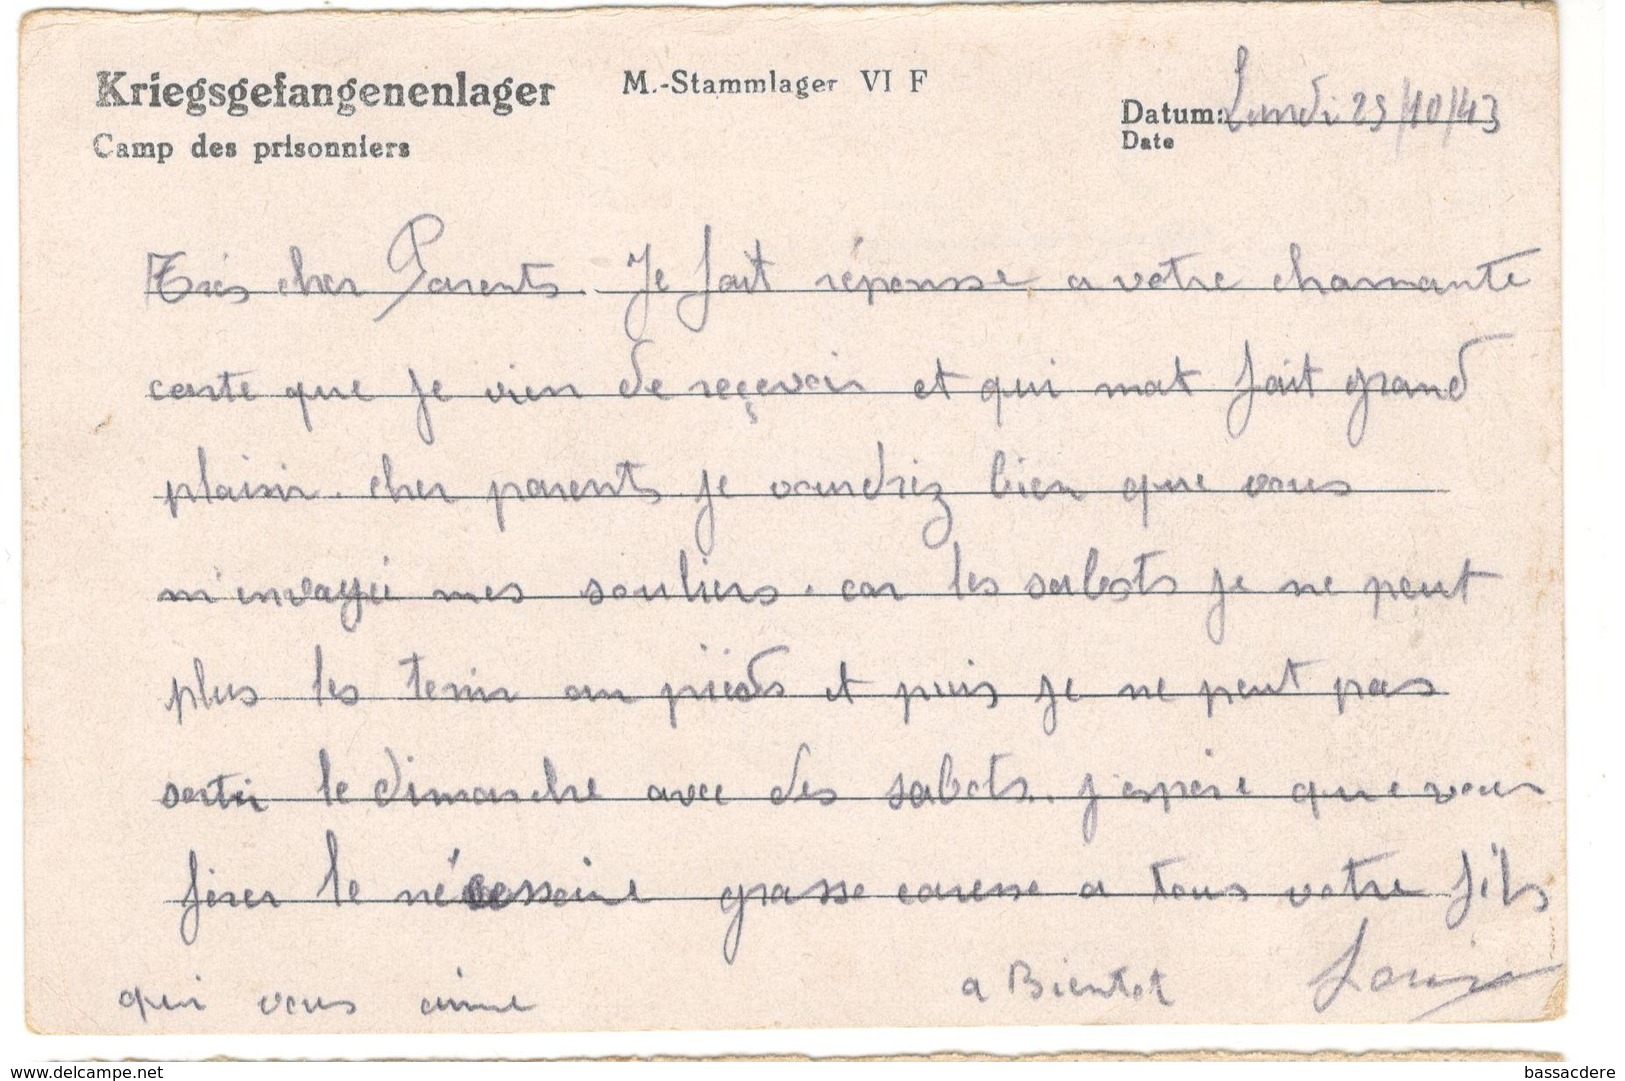 Kriegsgefangenenlager
Camp des prisonniers
M.-Stammlager VI F
Datum: Lundi 25/10/43
Date
Très cher Parents. Je fait réponsse a votre charmante
carte que je vien de reçevoir et qui mat fait grand
plaisir. cher parents je voudriez bien que vous
m'envoyié mes souliers. car les sabots je ne peut
plus les tenir au pieds et puis je ne peut pas
sortir le dimanche avec des sabots. j'espère que vous
ferer le nécessaire grosse caresse a tous votre fils
qui vous aime a Bientot Louis
www.delcampe.net
bassacdere